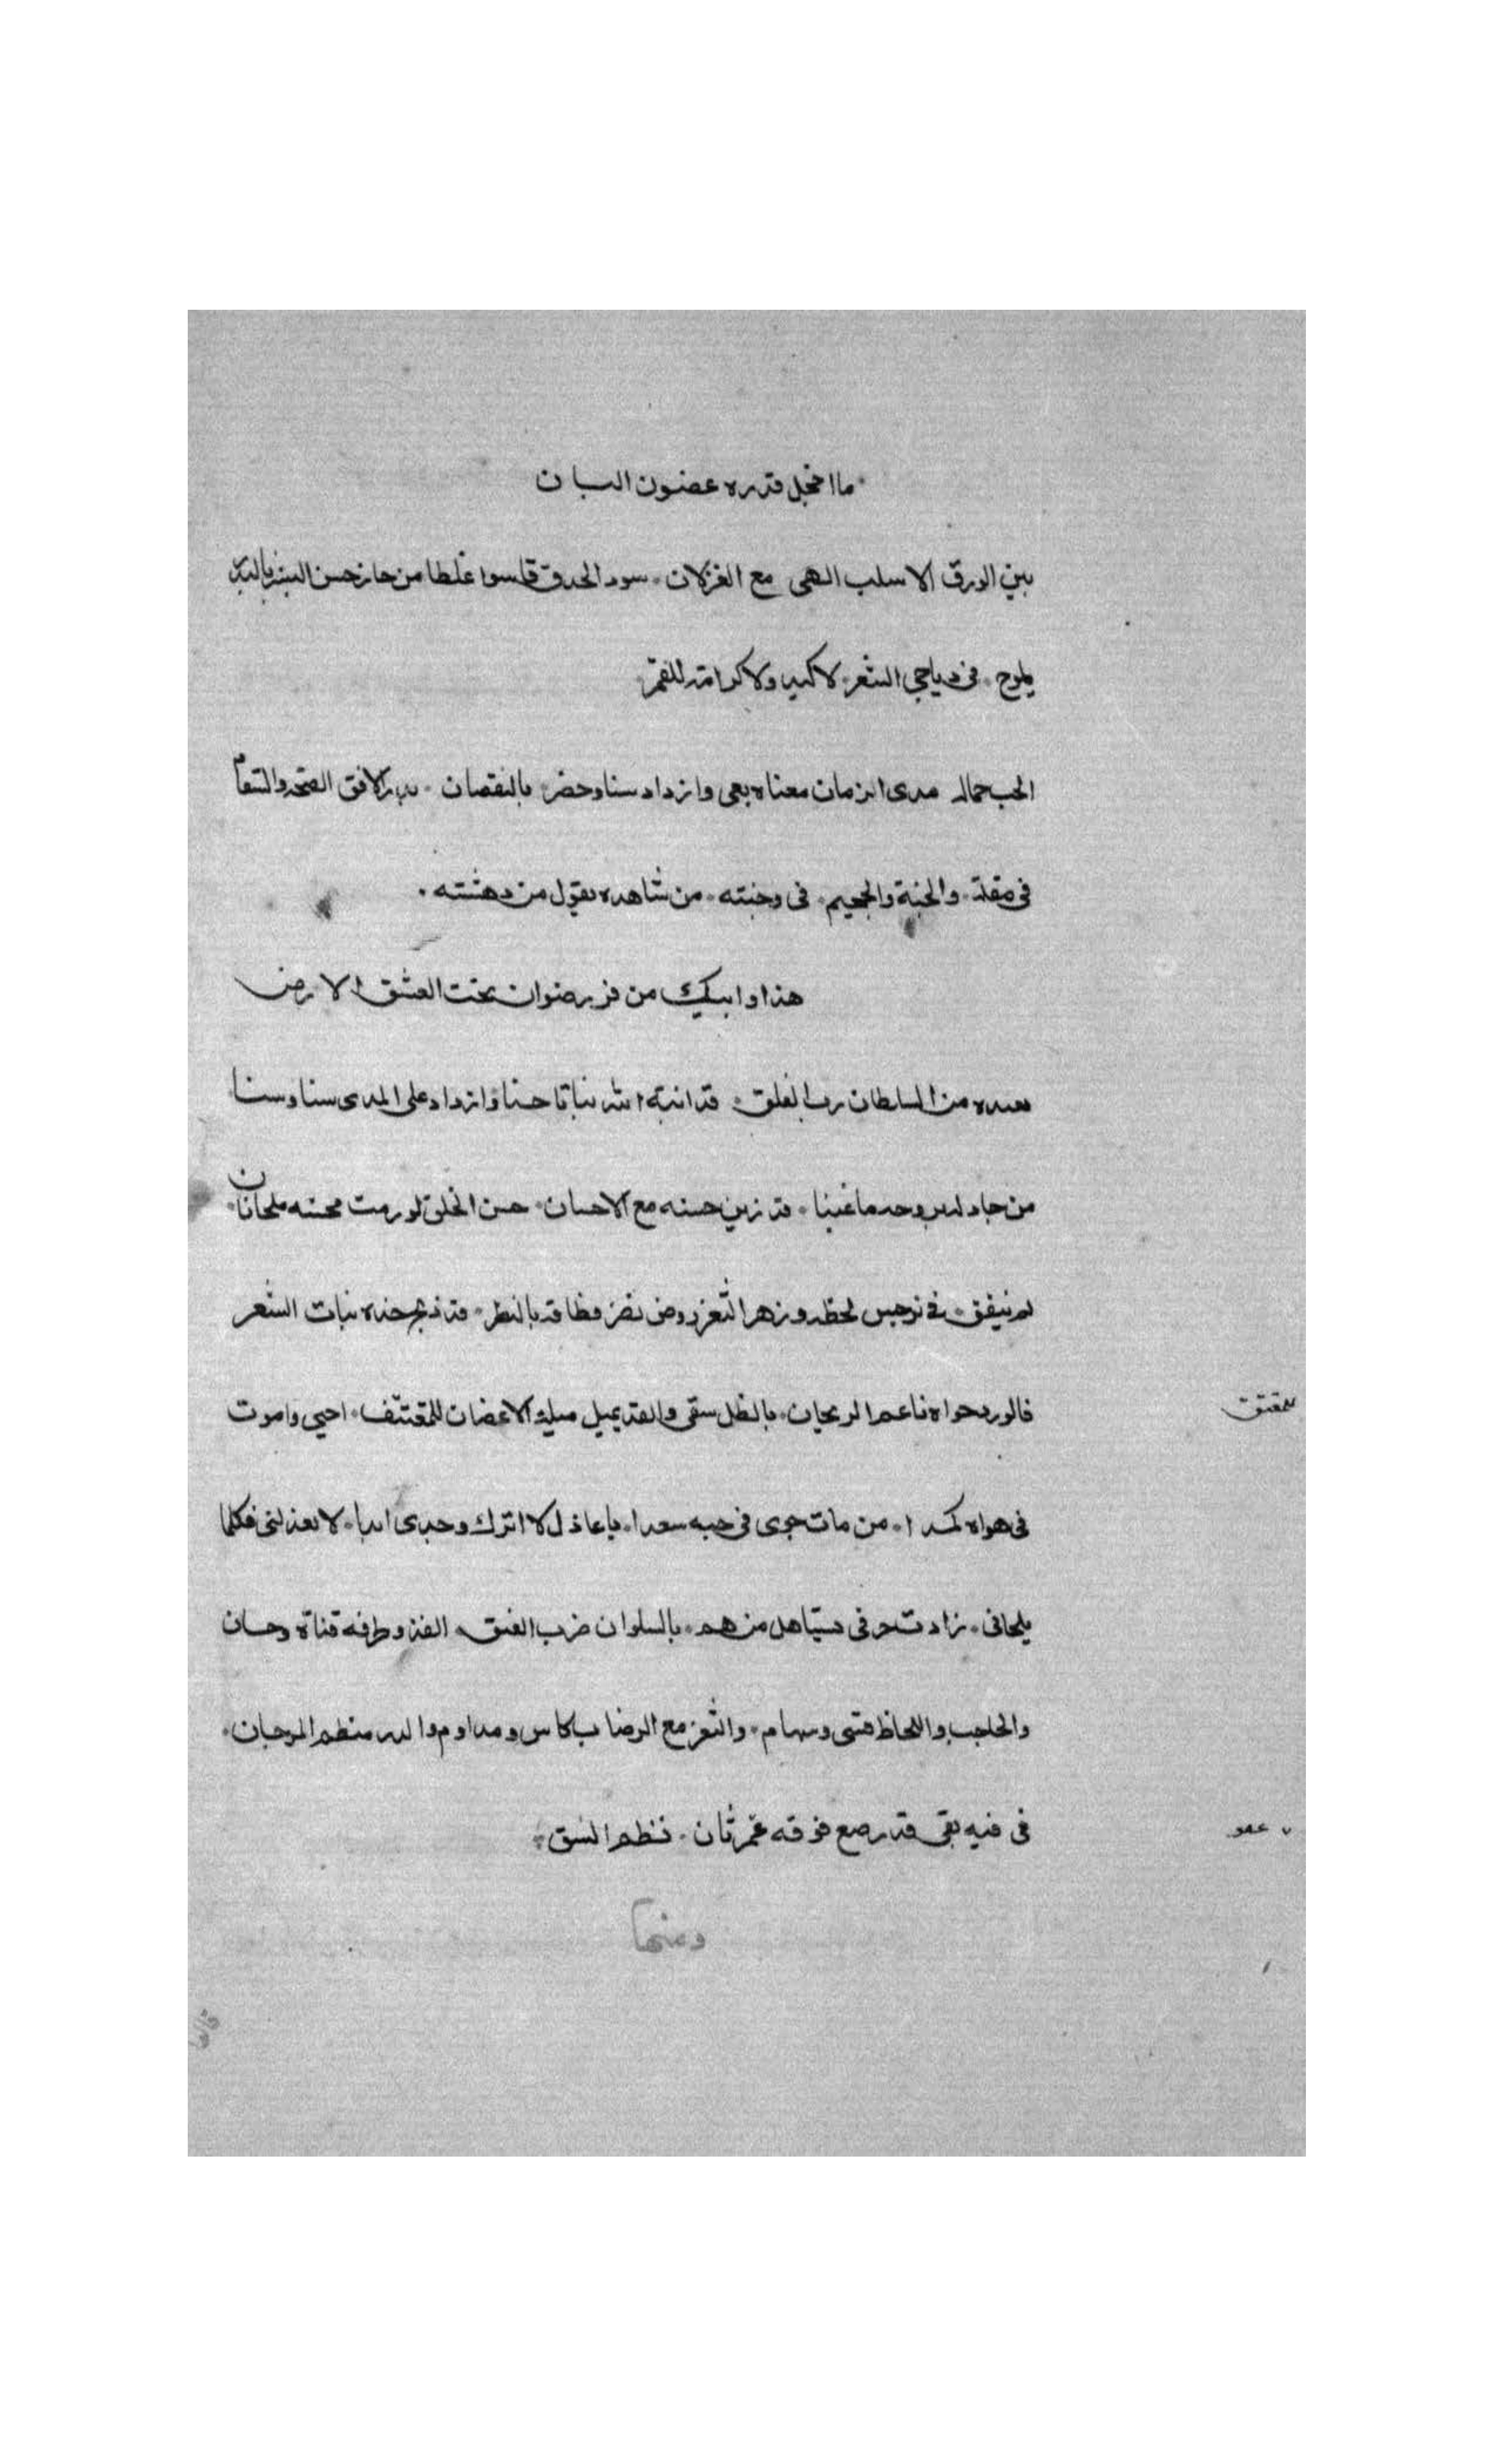 ما اخجل قدره غصون البان
بين الورق الا سلب المهى مع الغزلان سود الحدق قاسوا غلطا من حاز حسن البشر بالبدر
يلوح في دياجي الشعر لاكيد ولاكرامة للقمر
الحب جماله مدى الزمان معناه بقى وازداد سنا وخص بالنقصان بدر الافق الصحة والسقام
في مقلته والجنة والجحيم في وجنته من شاهده يقول من دهشته
هذا وابيك من فر رضوان تحت الغسق الارض
يعيده من السلطان رب الفلق قد انبته الله نباتا حسنا وازداد على المدى سنا وسنا
من جاد له بروحه ما غبنا قد زين حسنه مع الاحسان حسن الخلق لو رمت لحسنه ملحاثان
لم يتفق في نرجس لحظه وزهر الثغر روض نضر قطافه بالنظر قد دبج خده نبات الشعر
فالورد حواه ناعم الريحان بالظل سقى والقد يميل ميلة الاغصان للمعتنف احيى واموت
للمعتنق
في هواه كمدا من مات جوى في حبه سعدا يا عاذل لا اترك وجدي ابدا لا تعذلني فكلما
يلحاني زادت حرقى يستاهل من هم بالسلوان ضرب العنق القد وطرفه قناة وحسان
والحاجب واللحاظ قسى وسهام والثغر مع الرضاب كاس ومدام والدر منظم المرجان
في فيه بقى قد رصع فوقه عمرثان نظم النسق
ومنها